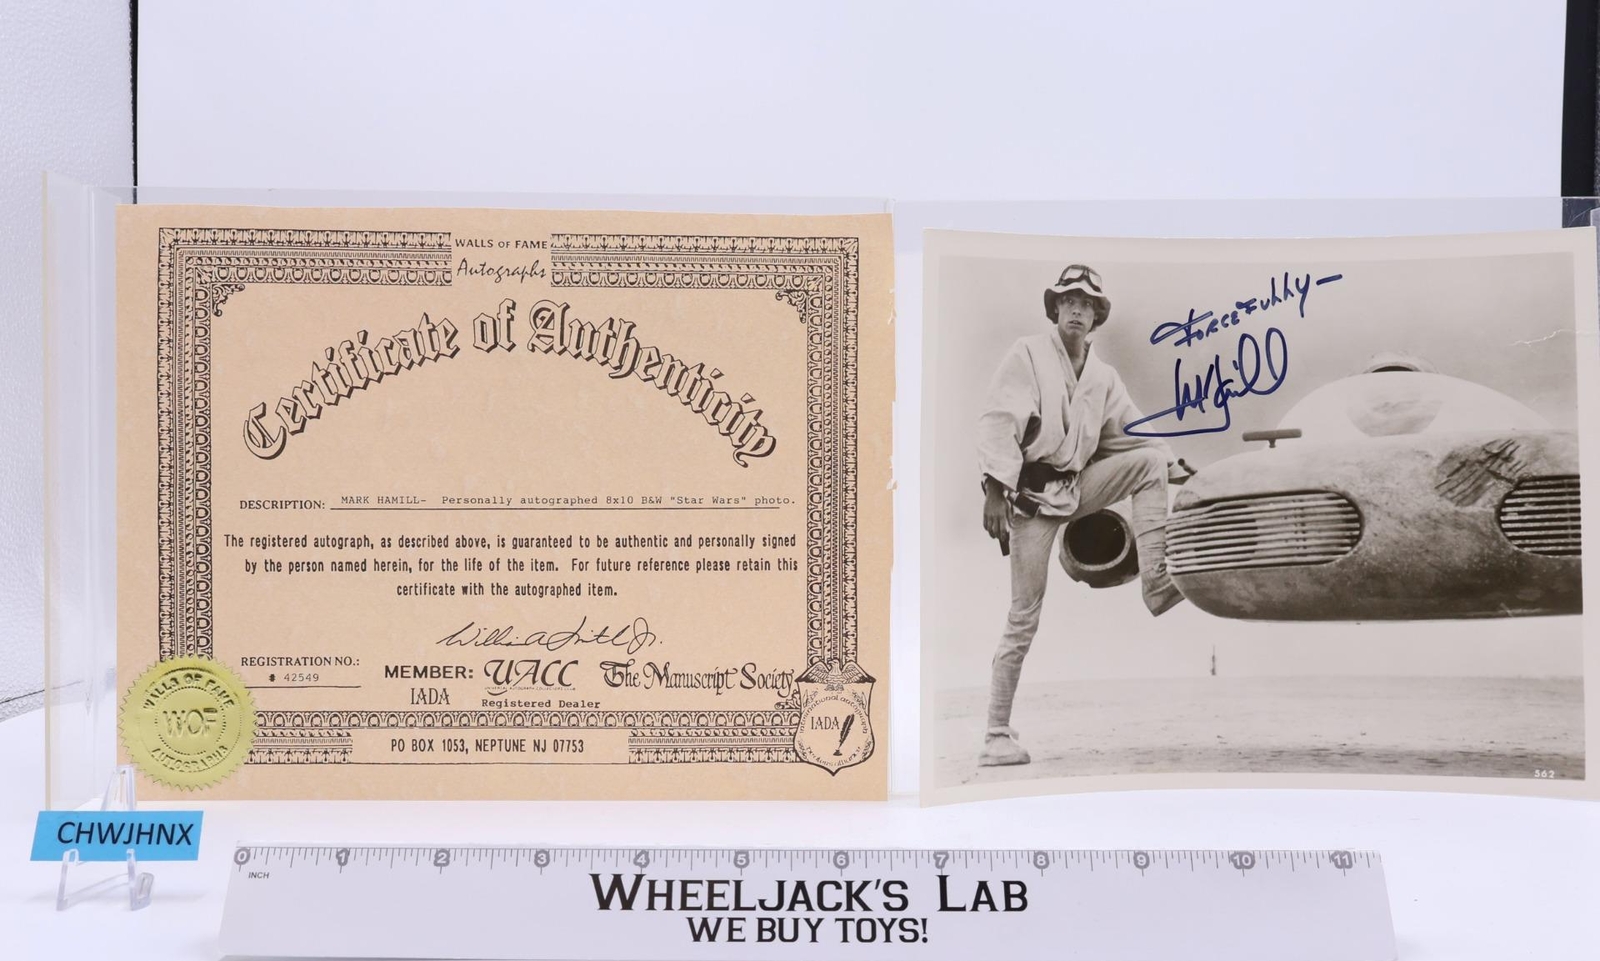 WALLS OF FAME
Autographs
Certificate of Authenticity
DESCRIPTION: MARK HAMILL- Personally autographed 8x10 B&W "Star Wars" photo.
The registered autograph, as described above, is guaranteed to be authentic and personally signed
by the person named herein, for the life of the item. For future reference please retain this
certificate with the autographed item.
William Smith Jr.
REGISTRATION NO.:
# 42549
MEMBER: UACC The Manuscript Society
IADA Registered Dealer
PO BOX 1053, NEPTUNE NJ 07753
WALLS OF FAME
WOF
AUTOGRAPHS
IADA
FORCEFULLY-
562
CHWJHNX
0 1 2 3 4 5 6 7 8 9 10 11
INCH
WHEELJACK'S LAB
WE BUY TOYS!